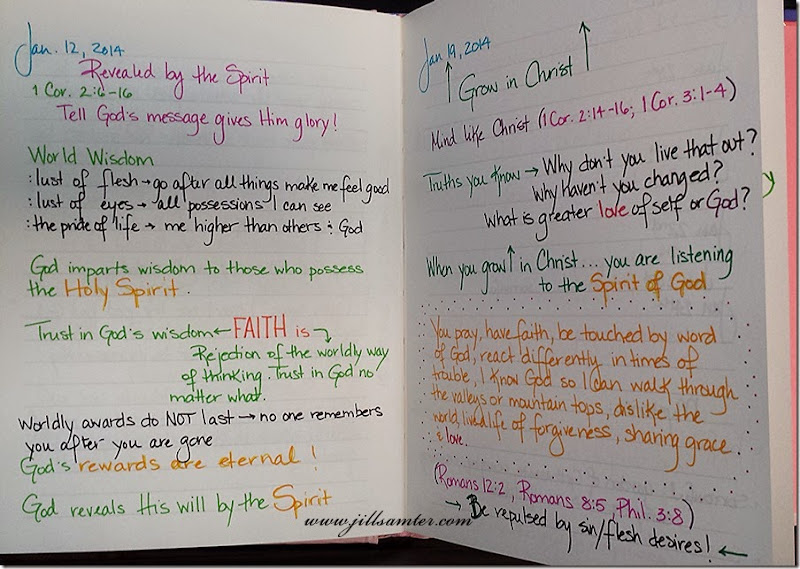 Jan. 12, 2014
Revealed by the Spirit
1 Cor. 2:6-16
Tell God's message gives Him glory!
World Wisdom
: lust of flesh → go after all things make me feel good
: lust of eyes → all possessions I can see
: the pride of life → me higher than others & God
God imparts wisdom to those who possess
the Holy Spirit.
Trust in God's wisdom ← FAITH is →
Rejection of the worldly way
of thinking. Trust in God no
matter what.
Worldly awards do NOT last → no one remembers
you after you are gone
God's rewards are eternal!
God reveals His will by the Spirit
Jan 19, 2014
↑ Grow in Christ ↑
Mind like Christ (1 Cor. 2:14-16; 1 Cor. 3:1-4)
Truths you know → Why don't you live that out?
Why haven't you changed?
What is greater love of self or God?
When you grow ↑ in Christ... you are listening
to the Spirit of God
You pray, have faith, be touched by word
of God, react differently in times of
trouble, I know God so I can walk through
the valleys or mountain tops, dislike the
world, live a life of forgiveness, sharing grace
& love.
(Romans 12:2, Romans 8:5, Phil. 3:8)
→ Be repulsed by sin/flesh desires! ←
y
www.jillsamter.com